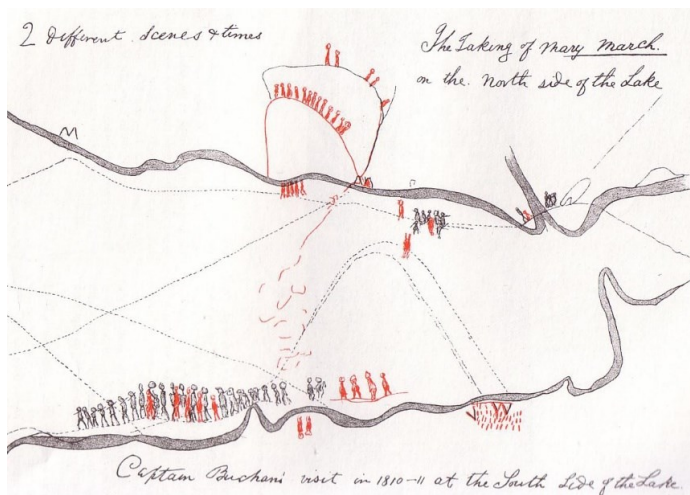 2 Different Scenes & times
The Taking of Mary March.
on the. North side of the Lake
Captain Buchan's visit in 1810-11 at the South Side of the Lake.